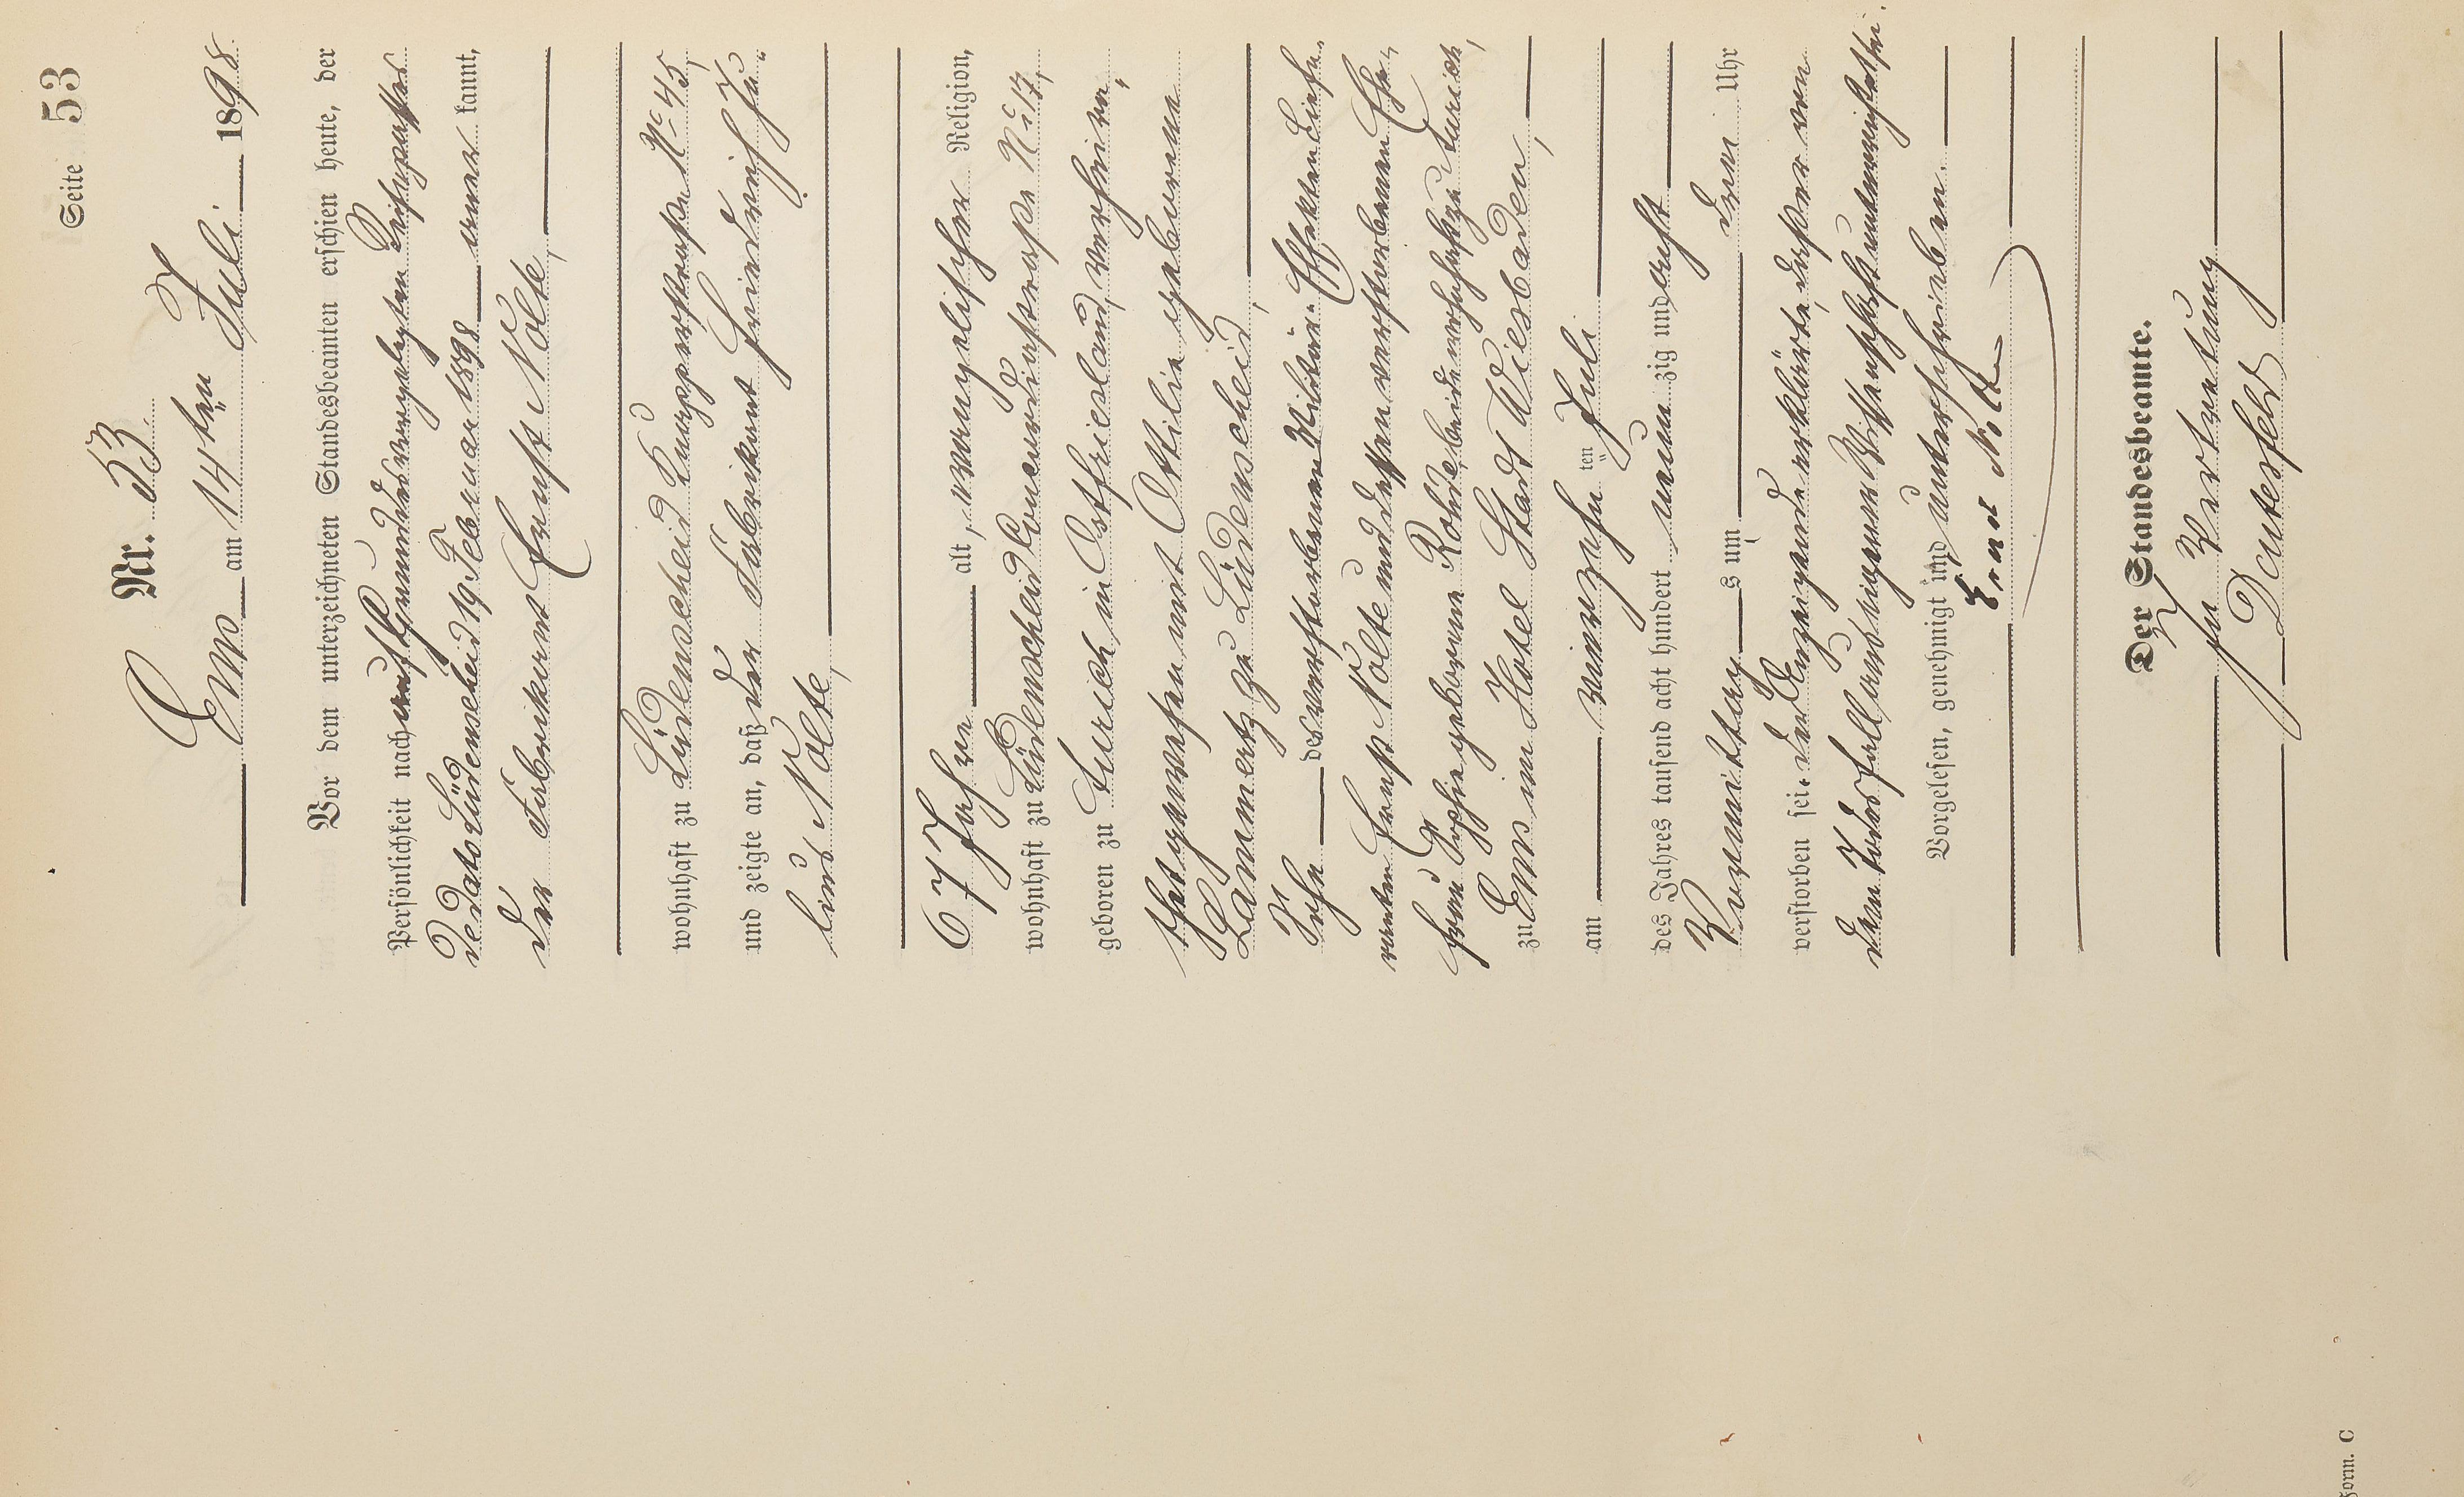 Seite 53
Nr. 53.
Ems am 14ten Juli 1898
Vor dem unterzeichneten Standesbeamten erschien heute, der
Persönlichkeit nach auf Grund des vorgelegten Reisepasses
de dato Lüdenscheid 19. Februar 1898 anerkannt,
der Fabrikant Ernst Nolte,
wohnhaft zu Lüdenscheid Knapperstraße No 45,
und zeigte an, daß der Fabrikant Friedrich Ju-
lius Nolte,
67 Jahre alt, evangelischer Religion,
wohnhaft zu Lüdenscheid Concordiastraße No 17,
geboren zu Aurich in Ostfriesland, verheira-
thet gewesen mit Ottilie geborene
Lammertz zu Lüdenscheid,
Sohn des verstorbenen Militär-Effekten Liefe-
ranten Ernst Nolte und dessen verstorbenen Ehe-
frau Sophie geborene Rohde, beide wohnhaft zu Aurich,
zu Ems im Hotel Stadt Wiesbaden,
am vierzehnten Juli
des Jahres tausend acht hundert neunzig und acht
Vormittags um drei Uhr
verstorben sei. Der Anzeigende erklärte, daß er von
dem Todesfall aus eigener Wissenschaft unterrichtet sei.
Vorgelesen, genehmigt und unterschrieben.
Ernst Nolte
Der Standesbeamte.
In Vertretung
Deutesfeld
Form. C